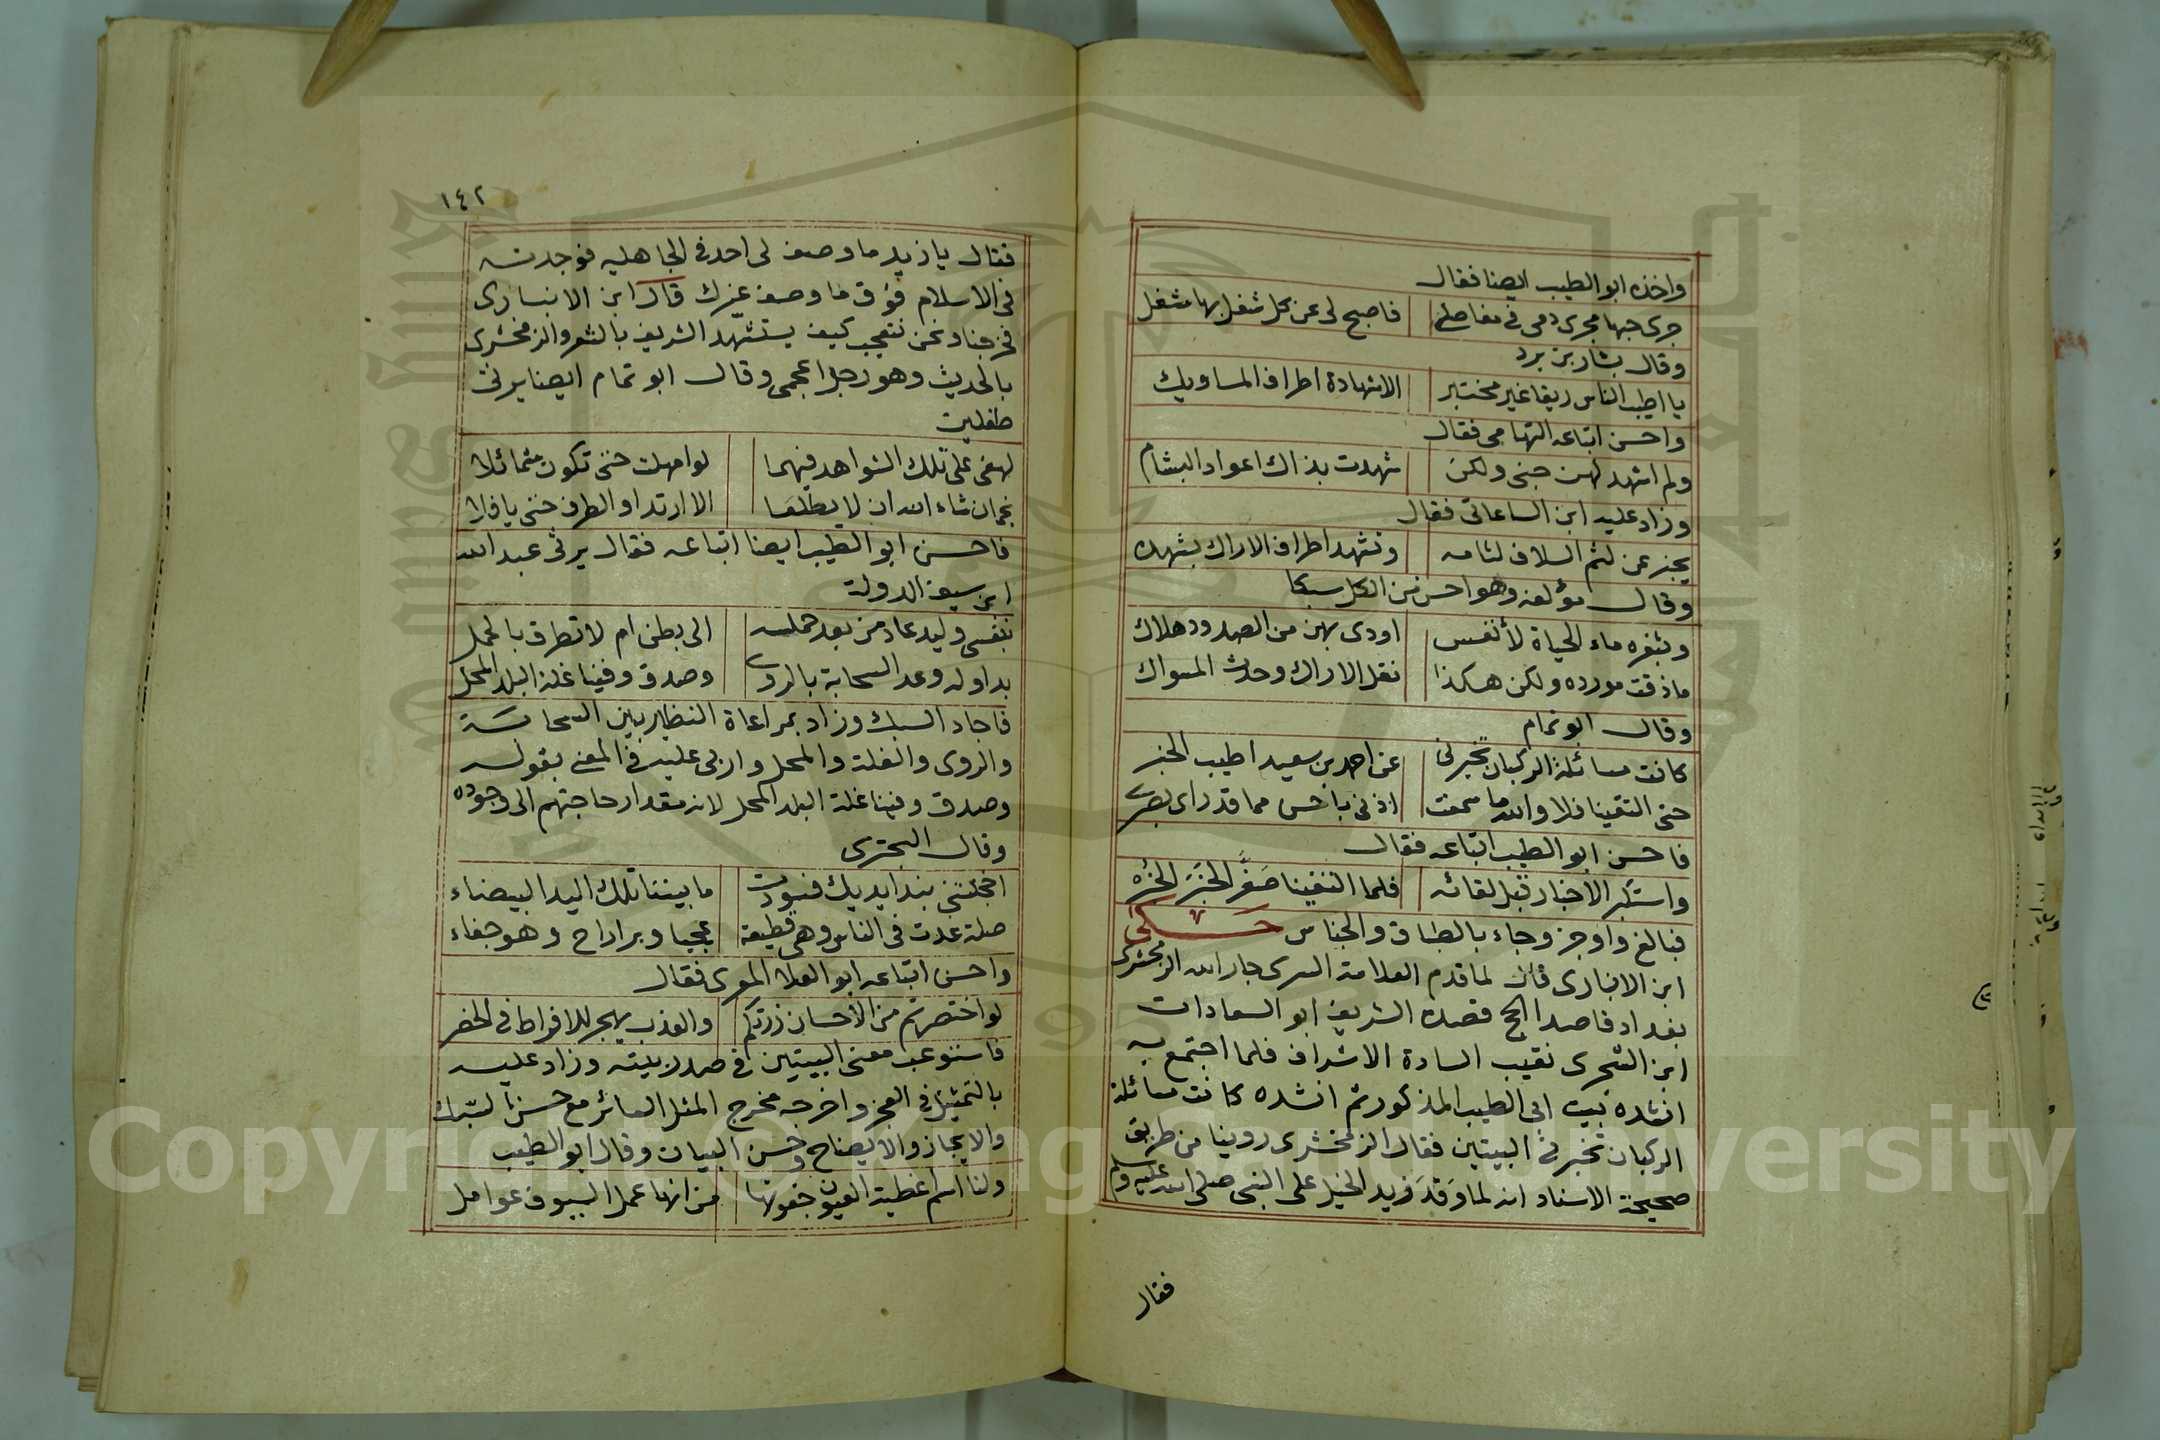 واخذه ابو الطيب ايضا فقال
جرى حبها مجرى دمى فى مفاصلى فاصبح لى عن كل شغل بها شغل
وقال بشار بن برد
يا اطيب الناس ريقا غير مختبر الا شهادة اطراف المساويك
واحسن اتباعه التهامى فقال
ولم اشهد لهن جنى ولكن شهدت بذاك اعواد البشام
وزاد عليه ابن الساعاتى فقال
يجبر عن لثم السلاف لثامه وتشهد اطراف الاراك بشهده
وقال مؤلفه وهو احسن من الكل سبكا
وبثغره ماء الحياة لأنفس اودى بهن من الصدود هلاك
ما ذقت مورده ولكن هكذا نقل الاراك وحدث المسواك
وقال ابو تمام
كانت مسائلة الركبان تخبرنى عن احمد بن سعيد اطيب الخبر
حتى التقينا فلا والله ما سمعت اذنى باحسن مما قد راى بصرى
فاحسن ابو الطيب اتباعه فقال
واستكبر الاخبار قبل لقائه فلما التقينا صغّر الخبَرَ الخبْرُ
فبالغ واوجز وجاء بالطباق والجناس حكى
ابن الانبارى قال لما قدم العلامة السرى جار الله الزمخشرى
بغداد قاصدا الحج قصده الشريف ابو السعادات
ابن الشجرى نقيب السادة الاشراف فلما اجتمع به
انشده بيت ابى الطيب المذكور ثم انشده كانت مسائلة
الركبان تخبرنى البيتين فقال الزمخشرى روينا من طريق
صحيحة الاسناد انه لما وَفَدَ زيد الخيل على النبى صلى الله عليه وسلم
فقال
١٤٢
فقال يا زيد ما وصف لى احد فى الجاهليه فوجدته
فى الاسلام فوق ما وصف غيرك قال ابن الانبارى
فخرجنا ونحن نتعجب كيف يستشهد الشريف بالشعر والزمخشرى
بالحديث وهو رجل اعجمى وقال ابو تمام ايضا يرثى
طفلين
لهفى على تلك الشواهد فيهما لو امهلت حتى تكون شمائلا
نجمان شاء الله ان لا يطلعا الا ارتداد الطرف حتى يافلا
فاحسن ابو الطيب ايضا اتباعه فقال يرثى عبد الله
ابن سيف الدولة
بنفسى وليد عاد من بعد حمله الى بطن ام لا تطرق بالحمل
بدا وله وعد السحابة بالروى وصدق وفينا غلة البلد المحل
فاجاد السبك وزاد بمراعاة النظير بين السحابة
والروى والغلة والمحل واربى عليه فى المعنى بقوله
وصدق وفينا غلة البلد المحل لانه مقدار حاجتهم الى وجوده
وقال البحترى
اخجلتنى بندا يديك فسودت ما بيننا تلك اليد البيضاء
صلة غدت فى الناس وهى قطيعة عجبا وبر راح وهو جفاء
واحسن اتباعه ابو العلا المعرى فقال
لو اختصرتم من الاحسان زرتكم والعذب يهجر للافراط فى الخصر
فاستوعب معنى البيتين فى صدر بيته وزاد عليه
بالتمثيل فى العجز واخرجه مخرج المثل السائر مع حسن السبك
والايجاز والايضاح وحسن البيان وقال ابو الطيب
ولذا اسم اغطية العيون جفونها من انها عمل السيوف عوامل
Copyright © King Saud University